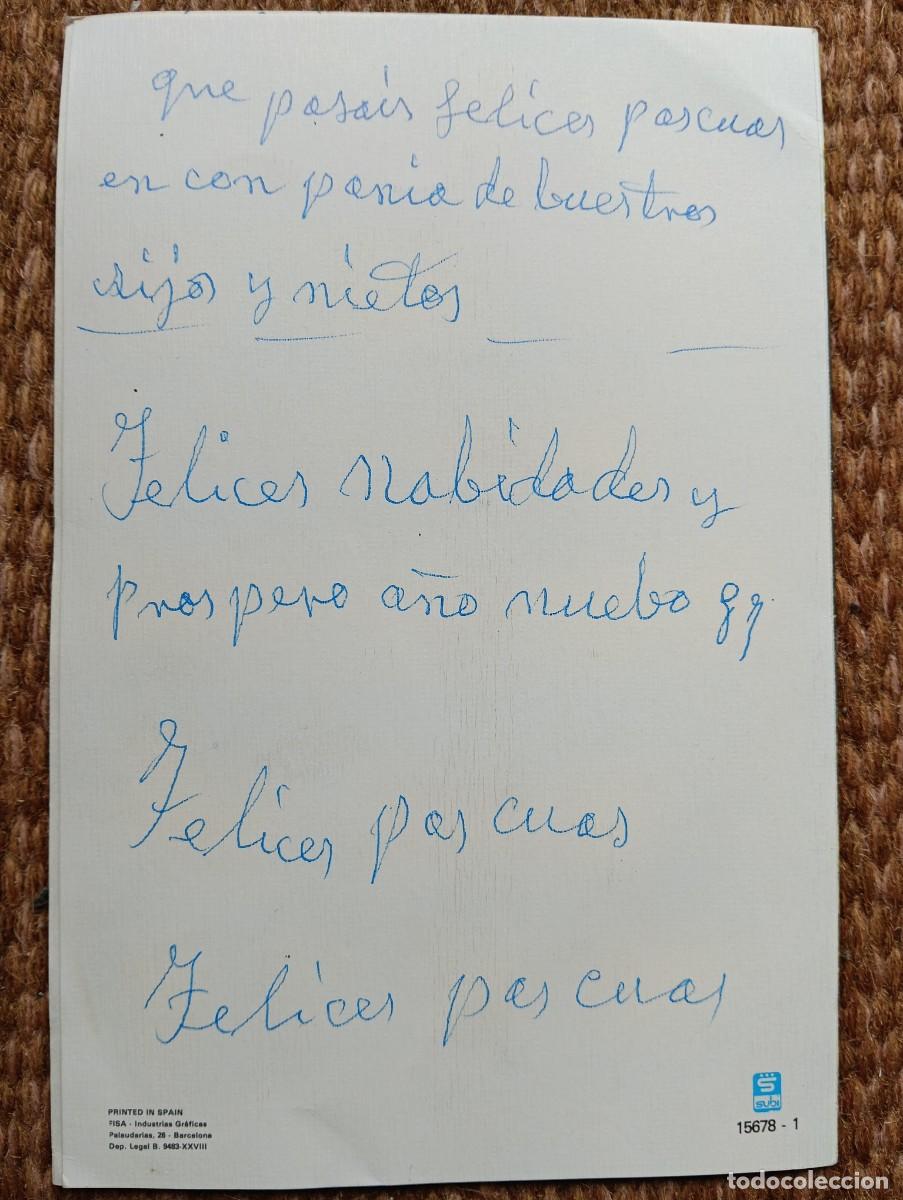 que pasais felices pascuas
en con pania de buestros
y nietos
Felices nabidades y
prospero año nuebo
Felices pas cuas
Felices pas cuas
PRINTED IN SPAIN
FISA - Industrias Gráficas
Palaudarias, 26 - Barcelona
Dep. Legal B. 9483-XXVIII
subi
15678 - 1
todocoleccion